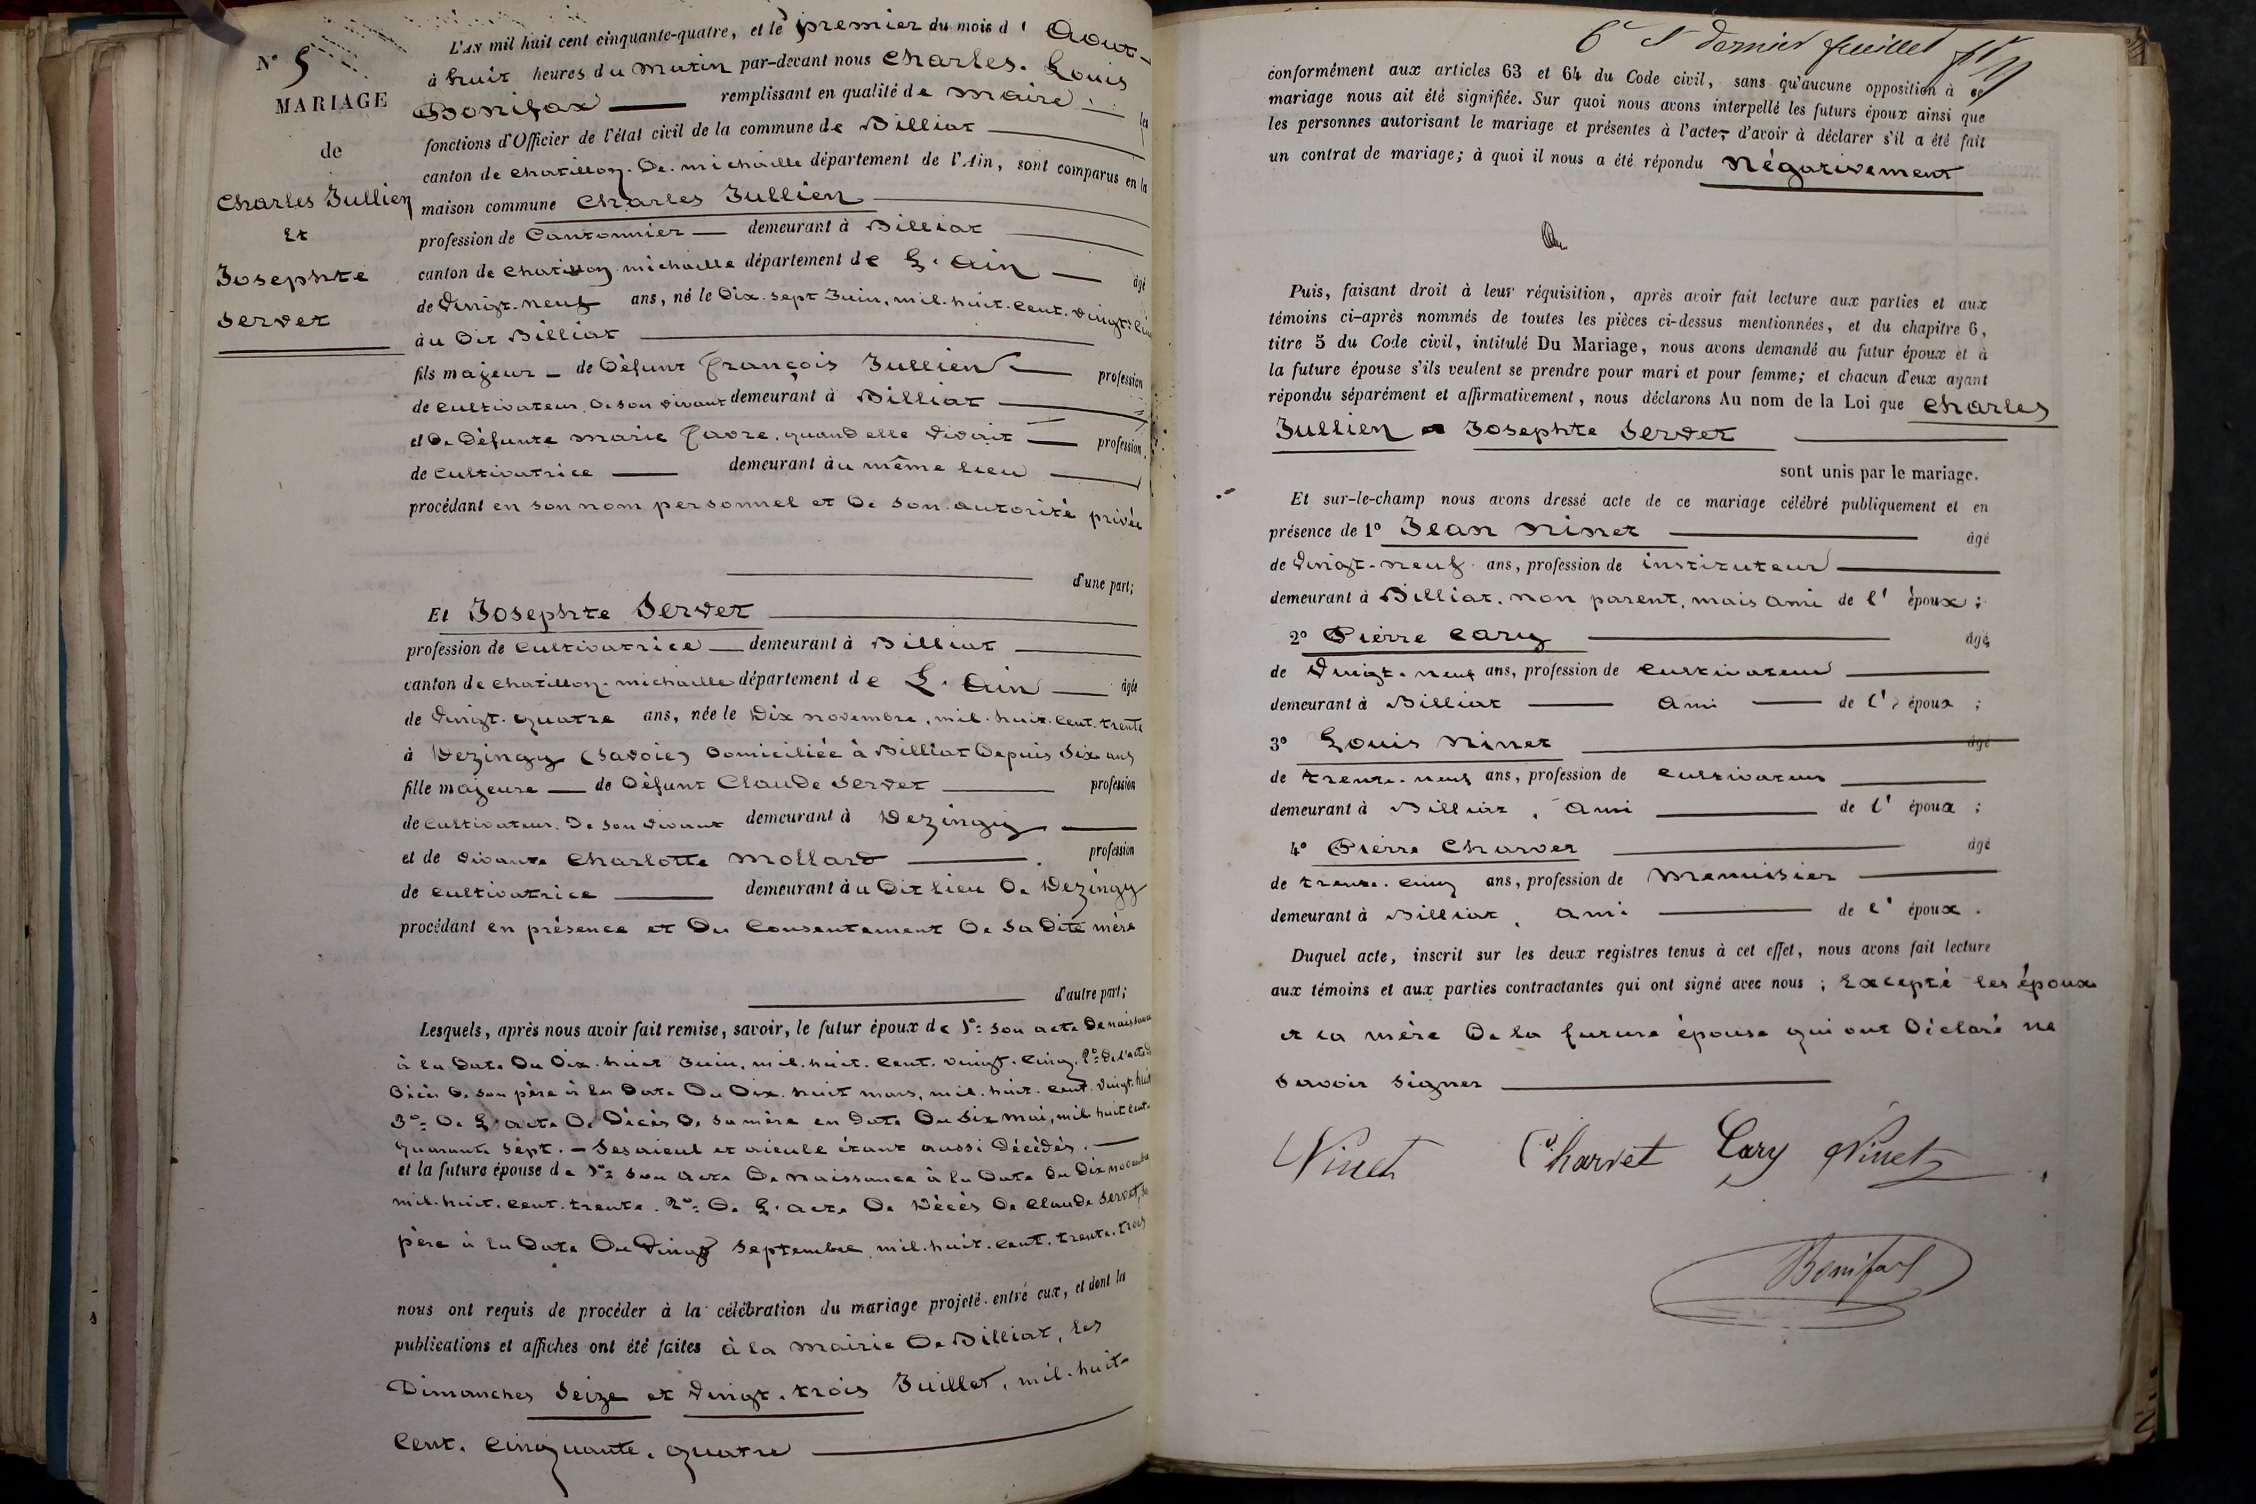 N° 5
MARIAGE
de
Charles Jullien
Et
Josephte
Servet
L'AN mil huit cent cinquante-quatre, et le premier du mois d' Aout
à huit heures du matin par-devant nous Charles. Louis
Bonifax remplissant en qualité de maire. les
fonctions d'Officier de l'état civil de la commune de Billiat
canton de Chatillon. De. michaille département de l'Ain, sont comparus en la
maison commune Charles Jullien
profession de Cantonnier demeurant à Billiat
canton de Chatillon michaille département de L'Ain âgé
de Vingt-neuf ans, né le Dix. sept Juin, mil. huit. Cent. Vingt. Cinq
àu Dit Billiat
fils majeur de Défunt François Jullien profession
de Cultivateur. De son vivant demeurant à Billiat
et De Défunte marie Favre. quand elle vivait profession
de Cultivatrice demeurant àu même lieu
procédant en son nom personnel et De son autorité privée
d'une part;
Et Josephte Servet
profession de Cultivatrice demeurant à Billiat
canton de Chatillon. michaille département de L'Ain âgée
de Vingt. quatre ans, née le Dix novembre, mil. huit. Cent. trente
à Dezingy (Savoie) Domiciliée à Billiat Depuis Six ans
fille majeure de Défunt Claude Servet profession
de Cultivateur. De son vivant demeurant à Dezingy
et de vivante Charlotte Mollard profession
de Cultivatrice demeurant àu Dit lieu De Dezingy
procédant en présence et Du Consentement De Sa Dite mère
d'autre part;
Lesquels, après nous avoir fait remise, savoir, le futur époux de 1°= son acte De naissance
à la Date Du Dix. huit Juin, mil. huit. Cent. vingt. Cinq. 2°= De l'acte de
Décès De son père à la Date Du Dix. huit mars, mil. huit. Cent. vingt. huit
3°= De L'acte De Décès De sa mère en Date Du Six mai, mil huit Cent.
quarante sept. – Ses aieul et aieule étant aussi Décédés.
et la future épouse de 1°= Son Acte De Naissance à la Date Du Dix novembre
mil. huit. Cent. trente. 2°= De L'acte De Décès De Claude Servet, Son
père à la Date Du Vingt Septembre mil. huit. Cent. trente. trois
nous ont requis de procéder à la célébration du mariage projeté entre eux, et dont la
publications et affiches ont été faites à la mairie De Billiat, les
Dimanches Seize et Vingt. trois Juillet, mil. huit
Cent. Cinquante. quatre
6e et dernier feuillet
conformément aux articles 63 et 64 du Code civil, sans qu'aucune opposition à ce
mariage nous ait été signifiée. Sur quoi nous avons interpellé les futurs époux ainsi que
les personnes autorisant le mariage et présentes à l'acte, d'avoir à déclarer s'il a été fait
un contrat de mariage; à quoi il nous a été répondu Négativement
Puis, faisant droit à leur réquisition, après avoir fait lecture aux parties et aux
témoins ci-après nommés de toutes les pièces ci-dessus mentionnées, et du chapitre 6,
titre 5 du Code civil, intitulé Du Mariage, nous avons demandé au futur époux et à
la future épouse s'ils veulent se prendre pour mari et pour femme; et chacun d'eux ayant
répondu séparément et affirmativement, nous déclarons Au nom de la Loi que Charles
Jullien et Josephte Servet
sont unis par le mariage.
Et sur-le-champ nous avons dressé acte de ce mariage célébré publiquement et en
présence de 1° Jean Ninet âgé
de Vingt. neuf ans, profession de instituteur
demeurant à Billiat. non parent, mais ami de l' époux;
2° Pierre Cary âgé
de Vingt. neuf ans, profession de Cultivateur
demeurant à Billiat Ami de l' époux ;
3° Louis Ninet âgé
de trente. neuf ans, profession de Cultivateur
demeurant à Billiat, Ami de l' époux ;
4° Pierre Charvet âgé
de trente. Cinq ans, profession de Menuisier
demeurant à Billiat, Ami de l' époux .
Duquel acte, inscrit sur les deux registres tenus à cet effet, nous avons fait lecture
aux témoins et aux parties contractantes qui ont signé avec nous ; Excepté les époux
et la mère De la future épouse qui ont Déclaré ne
Savoir Signer
Ninet Charvet Cary Ninet
Bonifax